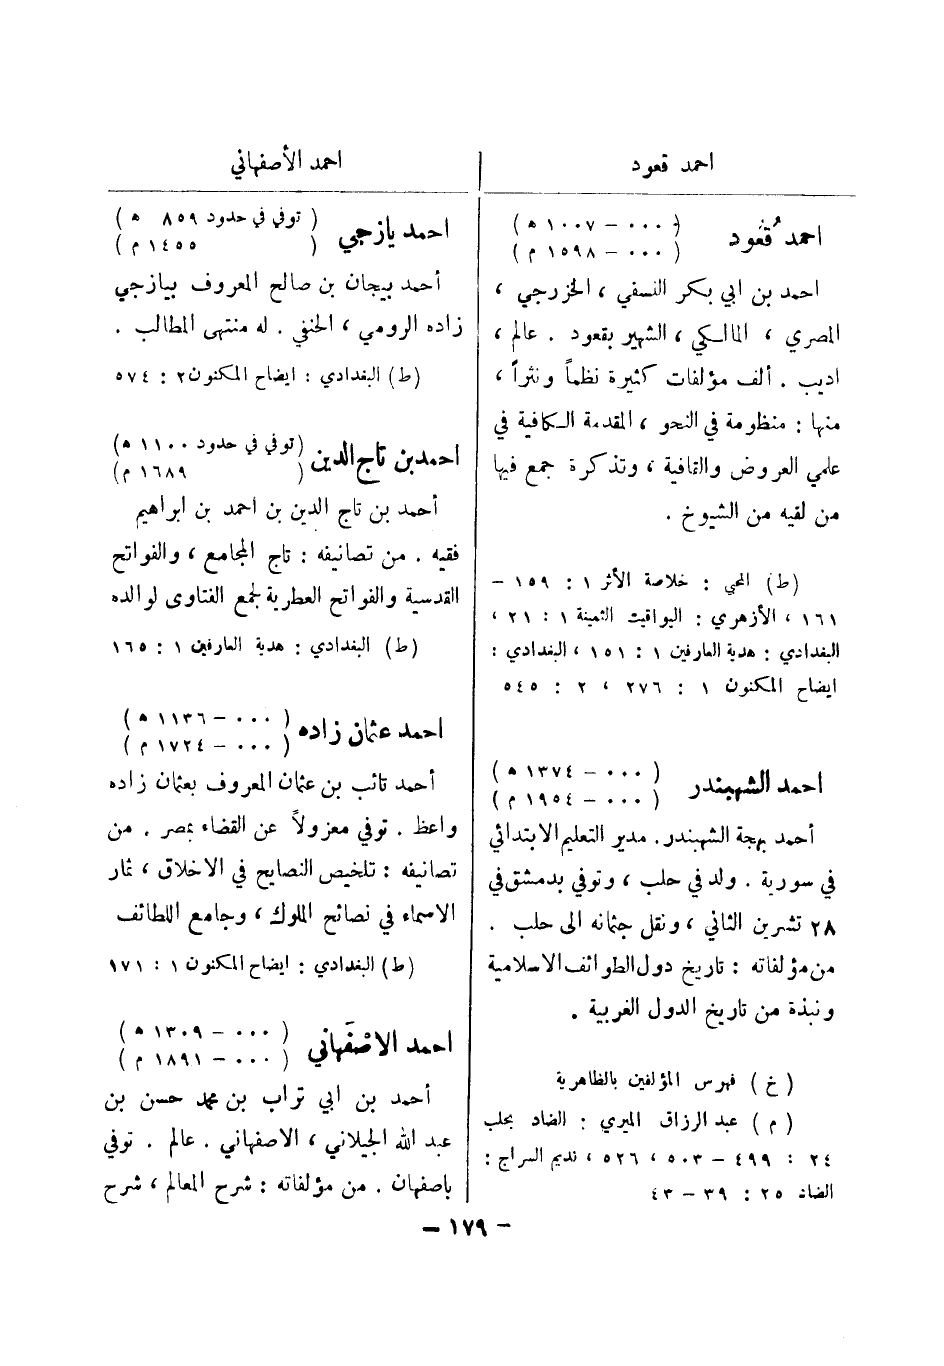 احمد قعود
احمد قعُود
( ٠٠٠ – ١٠٠٧ ه )
( ٠٠٠ – ١٥٩٨ م )
احمد بن ابي بكر النسفي ، الخزرجي ،
المصري ، المالكي ، الشهير بقعود . عالم ،
اديب . ألف مؤلفات كثيرة نظماً ونثراً ،
منها : منظومة في النحو ، المقدمة الكافية في
علمي العروض والقافية ، وتذكرة جمع فيها
من لقيه من الشيوخ .
(ط) المحبي : خلاصة الأثر ١ : ١٥٩ –
١٦١ ، الأزهري : اليواقيت الثمينة ١ : ٢١ ،
البغدادي : هدية العارفين ١ : ١٥١ ، البغدادي :
ايضاح المكنون ١ : ٢٧٦ ، ٢ : ٥٤٥
احمد الشهبندر
( ٠٠٠ – ١٣٧٤ ه )
( ٠٠٠ – ١٩٥٤ م )
أحمد بهجة الشهبندر. مدير التعليم الابتدائي
في سورية . ولد في حلب ، وتوفي بدمشق في
٢٨ تشرين الثاني ، ونقل جثمانه الى حلب .
من مؤلفاته : تاريخ دول الطوائف الاسلامية
ونبذة من تاريخ الدول الغربية .
( خ ) فهرس المؤلفين بالظاهرية
( م ) عبد الرزاق الميري : الضاد بحلب
٢٤ : ٤٩٩ – ٥٠٣ ، ٥٢٦ ، نديم السراج :
الضاد ٢٥ : ٣٩ – ٤٣
احمد الأصفهاني
احمد يازجي
( توفي في حدود ٨٥٩ ه )
( ١٤٥٥ م )
أحمد بيجان بن صالح المعروف بيازجي
زاده الرومي ، الحنفي . له منتهى المطالب .
(ط) البغدادي : ايضاح المكنون ٢ : ٥٧٤
احمد بن تاج الدين
(توفي في حدود ١١٠٠ ه)
( ١٦٨٩ م)
أحمد بن تاج الدين بن احمد بن ابراهيم
فقيه . من تصانيفه : تاج المجامع ، والفواتح
القدسية والفواتح العطرية لجمع الفتاوى لوالده
(ط) البغدادي : هدية العارفين ١ : ١٦٥
احمد عثمان زاده
( ٠٠٠ – ١١٣٦ ه )
( ٠٠٠ – ١٧٢٤ م )
أحمد تائب بن عثمان المعروف بعثمان زاده
واعظ . توفي معزولاً عن القضاء بمصر . من
تصانيفه : تلخيص النصايح في الاخلاق ، ثمار
الاسماء في نصائح الملوك ، وجامع اللطائف
(ط) البغدادي : ايضاح المكنون ١ : ١٧١
احمد الاصْفَهاني
( ٠٠٠ – ١٣٠٩ ه )
( ٠٠٠ – ١٨٩١ م )
أحمد بن ابي تراب بن محمد حسن بن
عبد الله الجيلاني ، الاصفهاني . عالم . توفي
باصفهان . من مؤلفاته : شرح المعالم ، شرح
– ١٧٩ –